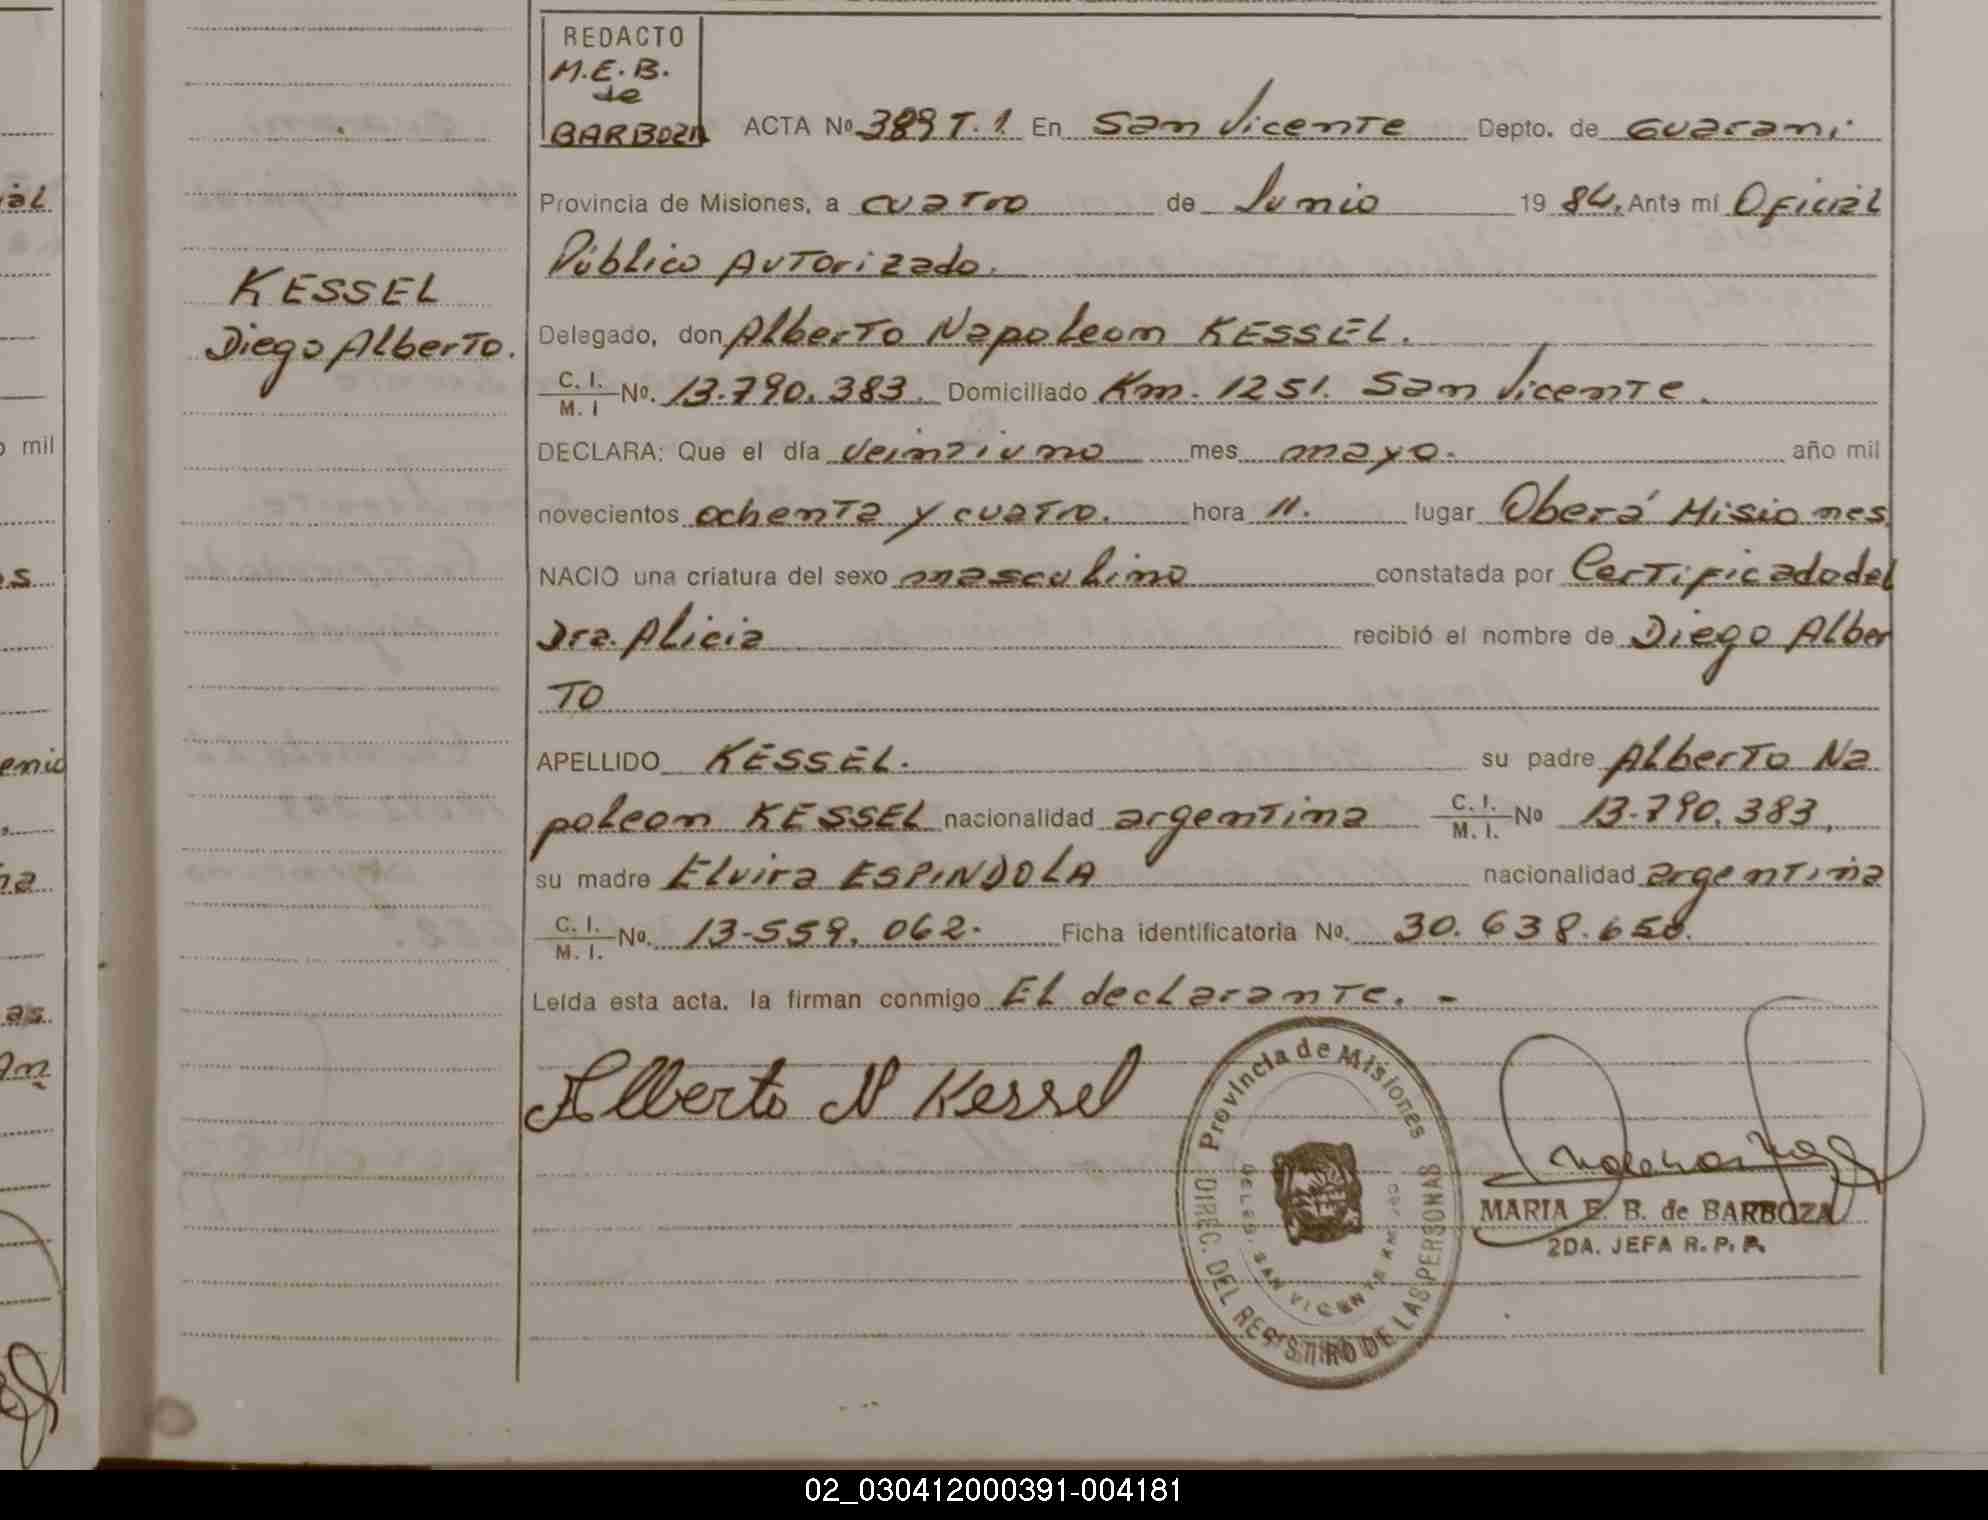 REDACTO
M.E.B.
de
BARBOZA
ACTA Nº 389 T.1. En San Vicente Depto. de Guarani
Provincia de Misiones, a cuatro de Junio 19 84. Ante mí Oficial
Público Autorizado.
KESSEL
Diego Alberto.
Delegado, don Alberto Napoleon KESSEL.
C. I.
M. I Nº. 13.790.383. Domiciliado Km. 1251. San Vicente.
DECLARA: Que el día veintiuno mes mayo. año mil
novecientos ochenta y cuatro. hora 11. lugar Oberá Misiones
NACIO una criatura del sexo masculino constatada por Certificado del
Dra. Alicia recibió el nombre de Diego Alber
TO
APELLIDO KESSEL. su padre Alberto Na
poleon KESSEL nacionalidad argentina C. I.
M. I. Nº 13.790.383.
su madre Elvira ESPINDOLA nacionalidad argentina
C. I.
M. I. Nº. 13.559.062. Ficha identificatoria No. 30.638.650.
Leída esta acta, la firman conmigo El declarante. -
Alberto N Kessel
Provincia de Misiones
DIREC. DEL REGISTRO DE LAS PERSONAS
DELEG. SAN VICENTE
MARIA E. B. de BARBOZA
2DA. JEFA R. P. P.
ial
o mil
es
enio
na
as
An
02_030412000391-004181